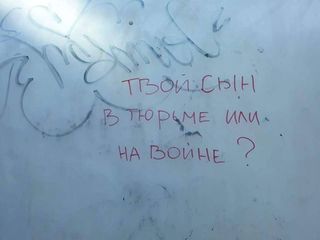 ТВОЙ СЫН
В ТЮРЬМЕ ИЛИ
НА ВОЙНЕ?